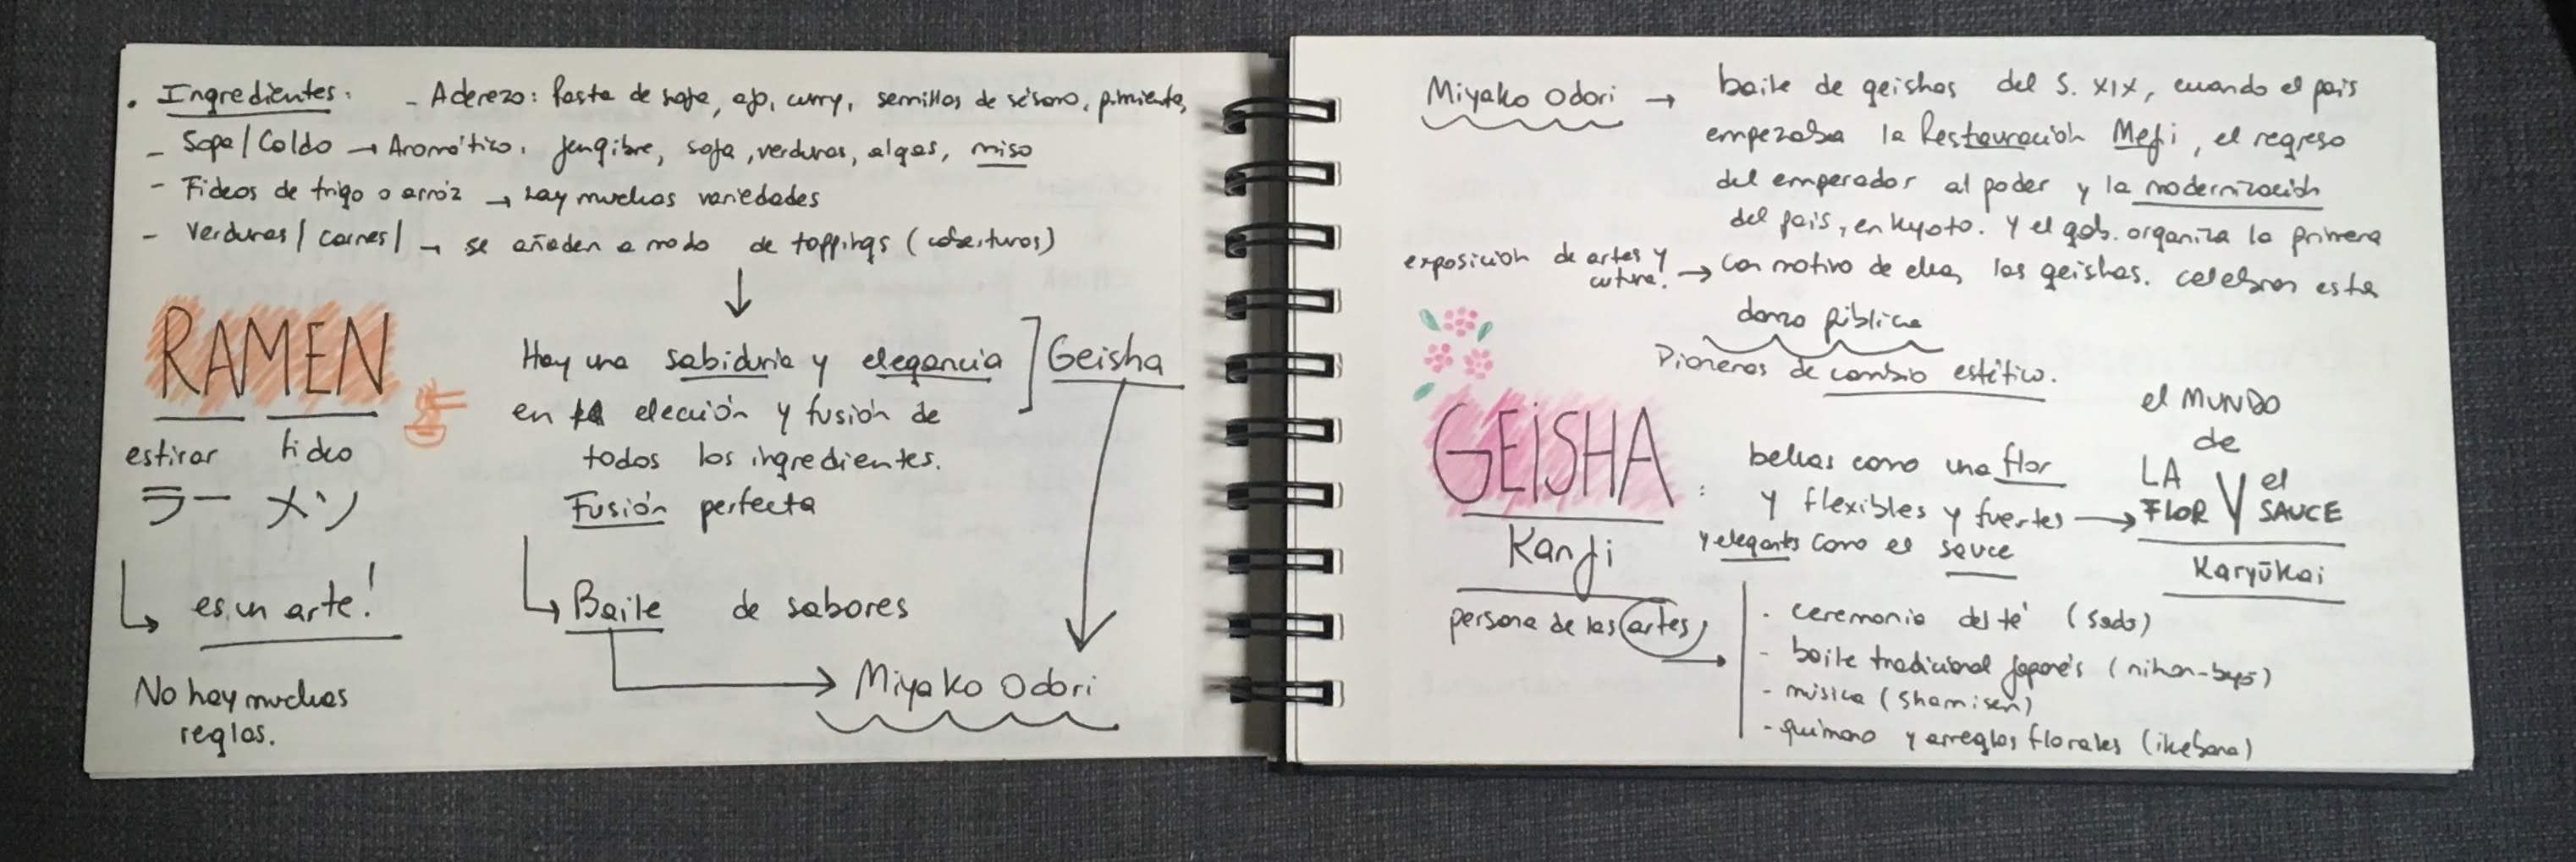 • Ingredientes: - Aderezo: Pasta de soja, ajo, curry, semillas de sésamo, pimienta,
- Sopa/Caldo → Aromático, jengibre, soja, verduras, algas, miso
- Fideos de trigo o arroz → hay muchas variedades
- Verduras/carnes/ → se añaden a modo de toppings (coberturas)
RAMEN
estirar fideo
ラーメン
↳ es un arte!
No hay muchas
reglas.
Hay una sabiduría y elegancia ] Geisha
en la elección y fusión de
todos los ingredientes.
Fusión perfecta
↳ Baile de sabores
→ Miyako Odori
Miyako Odori → baile de geishas del S. XIX, cuando el país
empezaba la Restauración Meji, el regreso
del emperador al poder y la modernización
del país, en Kyoto. Y el gob. organiza la primera
exposición de artes y
cultura. → Con motivo de ella, las geishas. celebran esta
danza pública
Pioneras de cambio estético.
GEISHA :
Kanji
persona de las artes
bellas como una flor
y flexibles y fuertes →
y elegantes como el sauce
el MUNDO
de
LA FLOR Y el SAUCE
Karyūkai
- ceremonia del té (Sado)
- baile tradicional japonés (nihon-buyō)
- música (Shamisen)
- quimono y arreglos florales (ikebana)